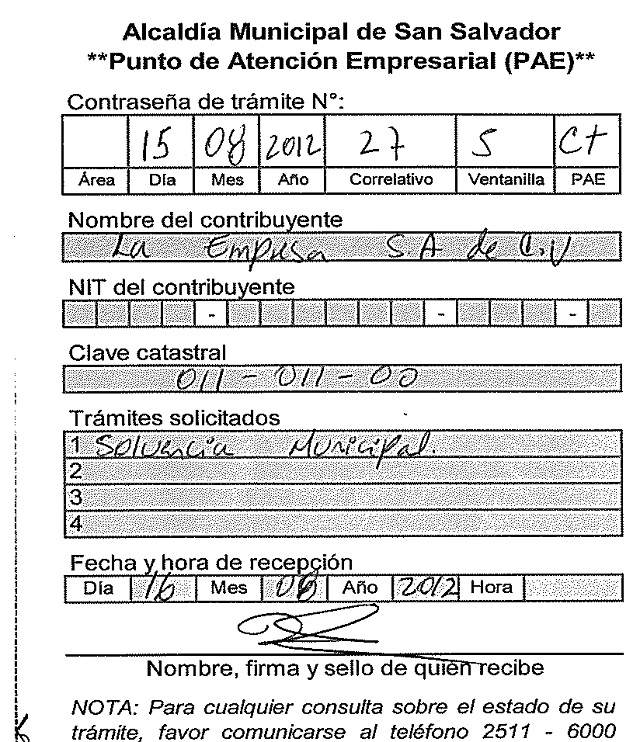 Alcaldía Municipal de San Salvador
**Punto de Atención Empresarial (PAE)**
Contraseña de trámite N°:
15 08 2012 27 5 Ct
Área Día Mes Año Correlativo Ventanilla PAE
Nombre del contribuyente
La Empresa S A de C.V
NIT del contribuyente
- - -
Clave catastral
011 - 011 - 00
Trámites solicitados
1 Solvencia Municipal.
2
3
4
Fecha y hora de recepción
Día 16 Mes 08 Año 2012 Hora
Nombre, firma y sello de quien recibe
NOTA: Para cualquier consulta sobre el estado de su
trámite, favor comunicarse al teléfono 2511 - 6000